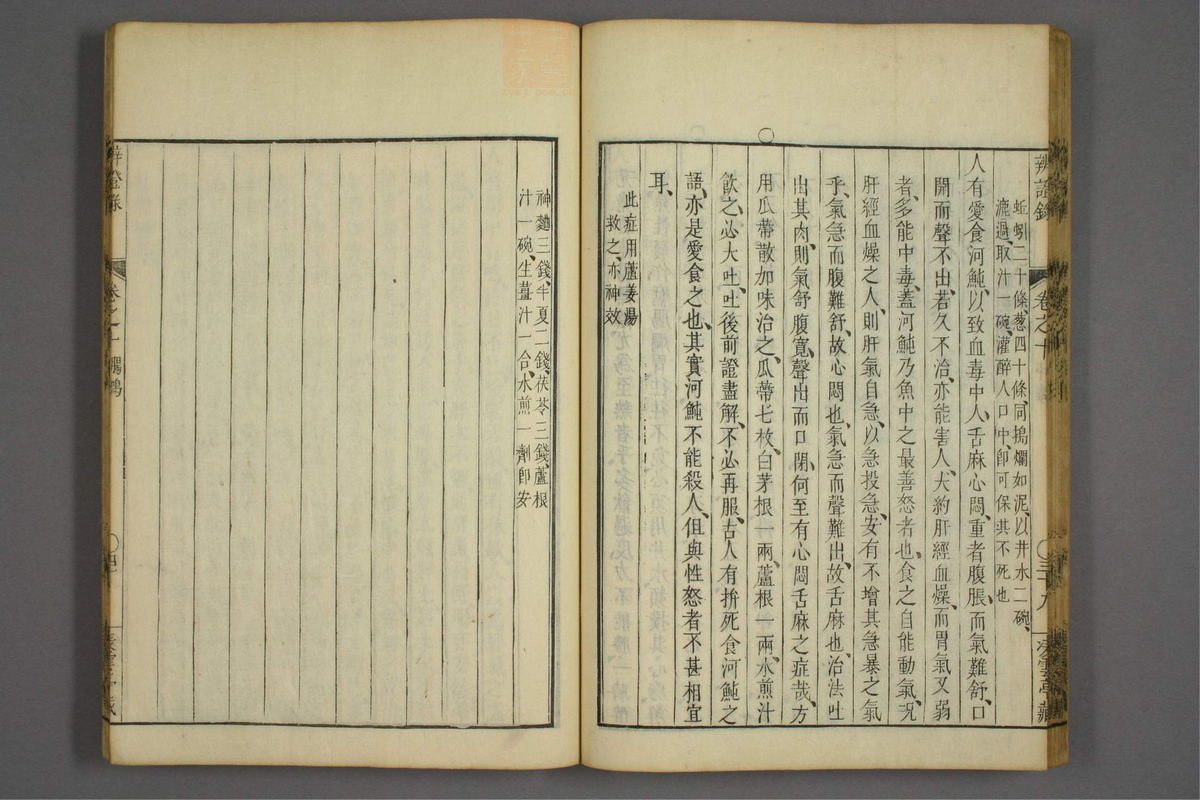 辨證錄
卷之十
三十八
蚯蚓二十條、葱四十條、同搗爛如泥、以井水二碗、
漉過、取汁一碗、灌醉人口中、卽可保其不死也
人有愛食河魨、以致血毒中人、舌麻心悶、重者腹脹、而氣難舒、口
開而聲不出、若久不治、亦能害人、大約肝經血燥、而胃氣又弱
者、多能中毒、蓋河魨乃魚中之最善怒者也、食之自能動氣、况
肝經血燥之人、則肝氣自急、以急投急、安有不增其急暴之氣
乎、氣急而腹難舒、故心悶也、氣急而聲難出、故舌麻也、治法吐
出其肉、則氣舒腹寬、聲出而口閉、何至有心悶舌麻之症哉、方
用瓜蒂散加味治之、瓜蒂七枚、白茅根一兩、蘆根一兩、水煎汁
飲之、必大吐、吐後前證盡解、不必再服、古人有拚死食河魨之
語、亦是愛食之也、其實河魨不能殺人、但與性怒者不甚相宜
耳、
此症用蘆姜湯
救之、亦神效
神麯三錢、半夏二錢、茯苓三錢、蘆根
汁一碗、生薑汁一合、水煎一劑卽安